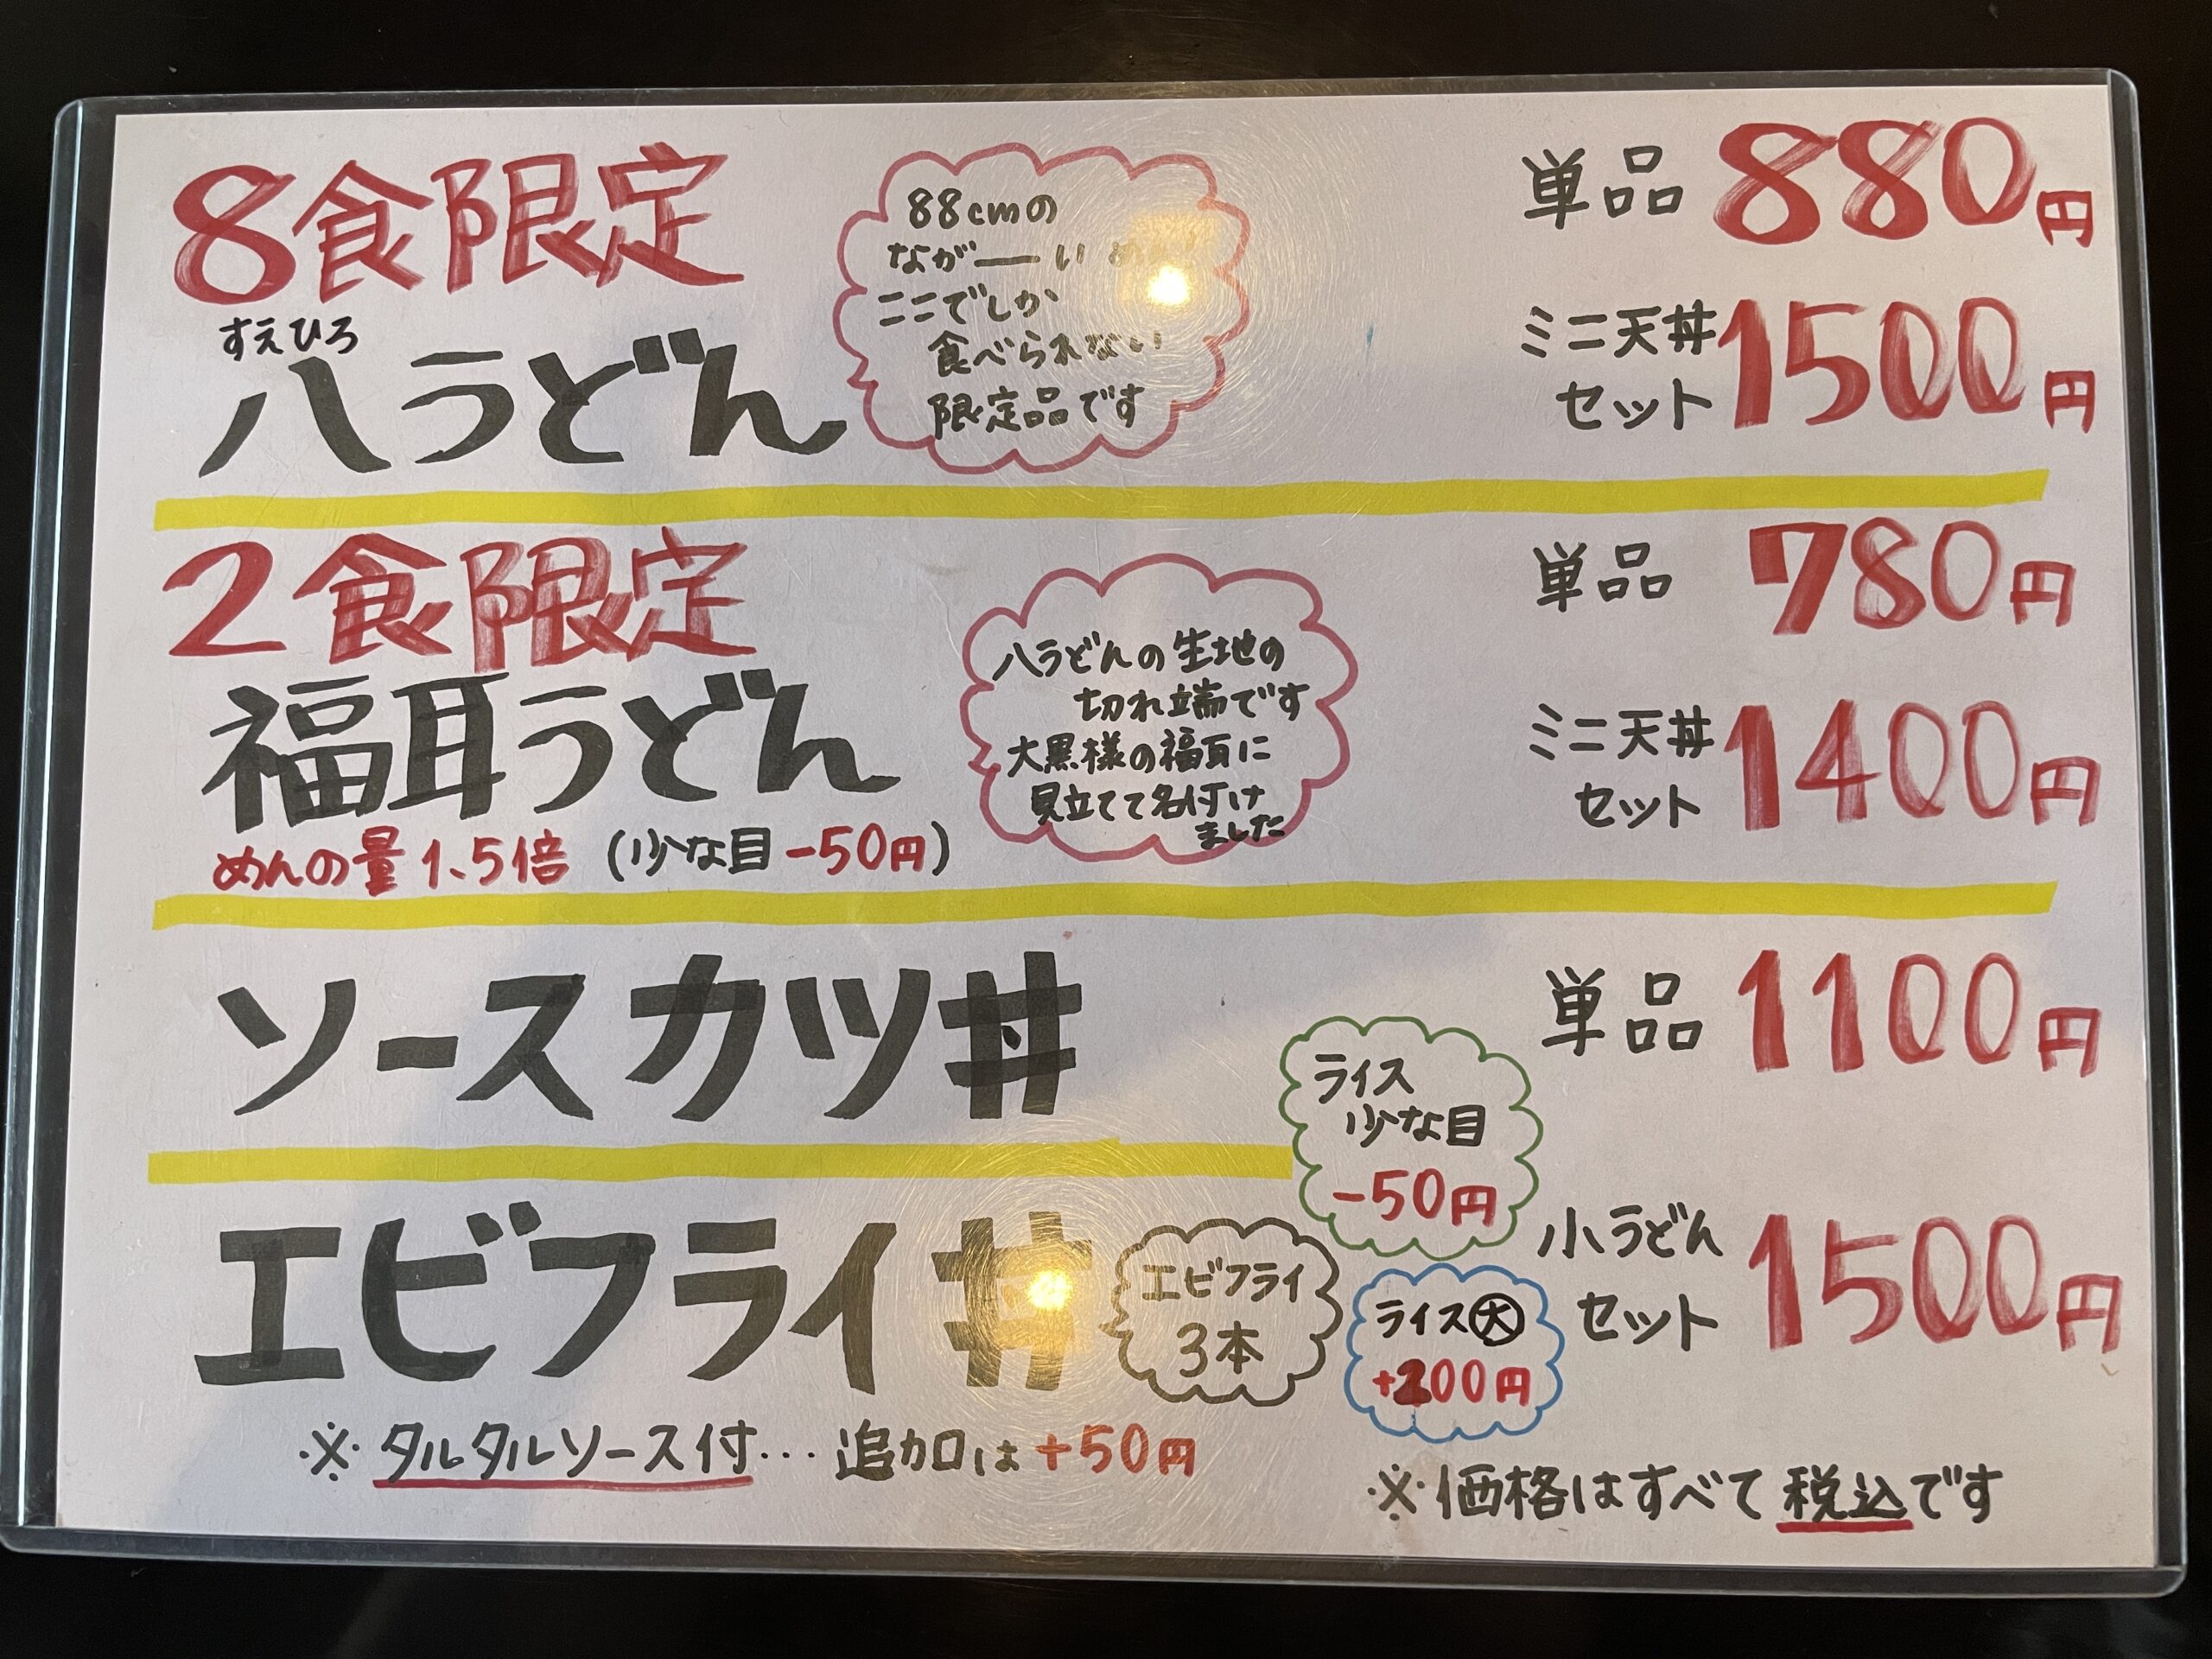 8食限定
すえひろ
八うどん
88cmの
なが――い めん!
ここでしか
食べられない
限定品です
単品 880円
ミニ天丼
セット 1500円
2食限定
福耳うどん
めんの量 1.5倍 (少な目 -50円)
八うどんの生地の
切れ端です
大黒様の福耳に
見立てて名付け
ました
単品 780円
ミニ天丼
セット 1400円
ソースカツ丼
単品 1100円
ライス
少な目
-50円
エビフライ丼
エビフライ
3本
ライス㊅
+200円
小うどん
セット 1500円
※ タルタルソース付… 追加は +50円
※価格はすべて税込です